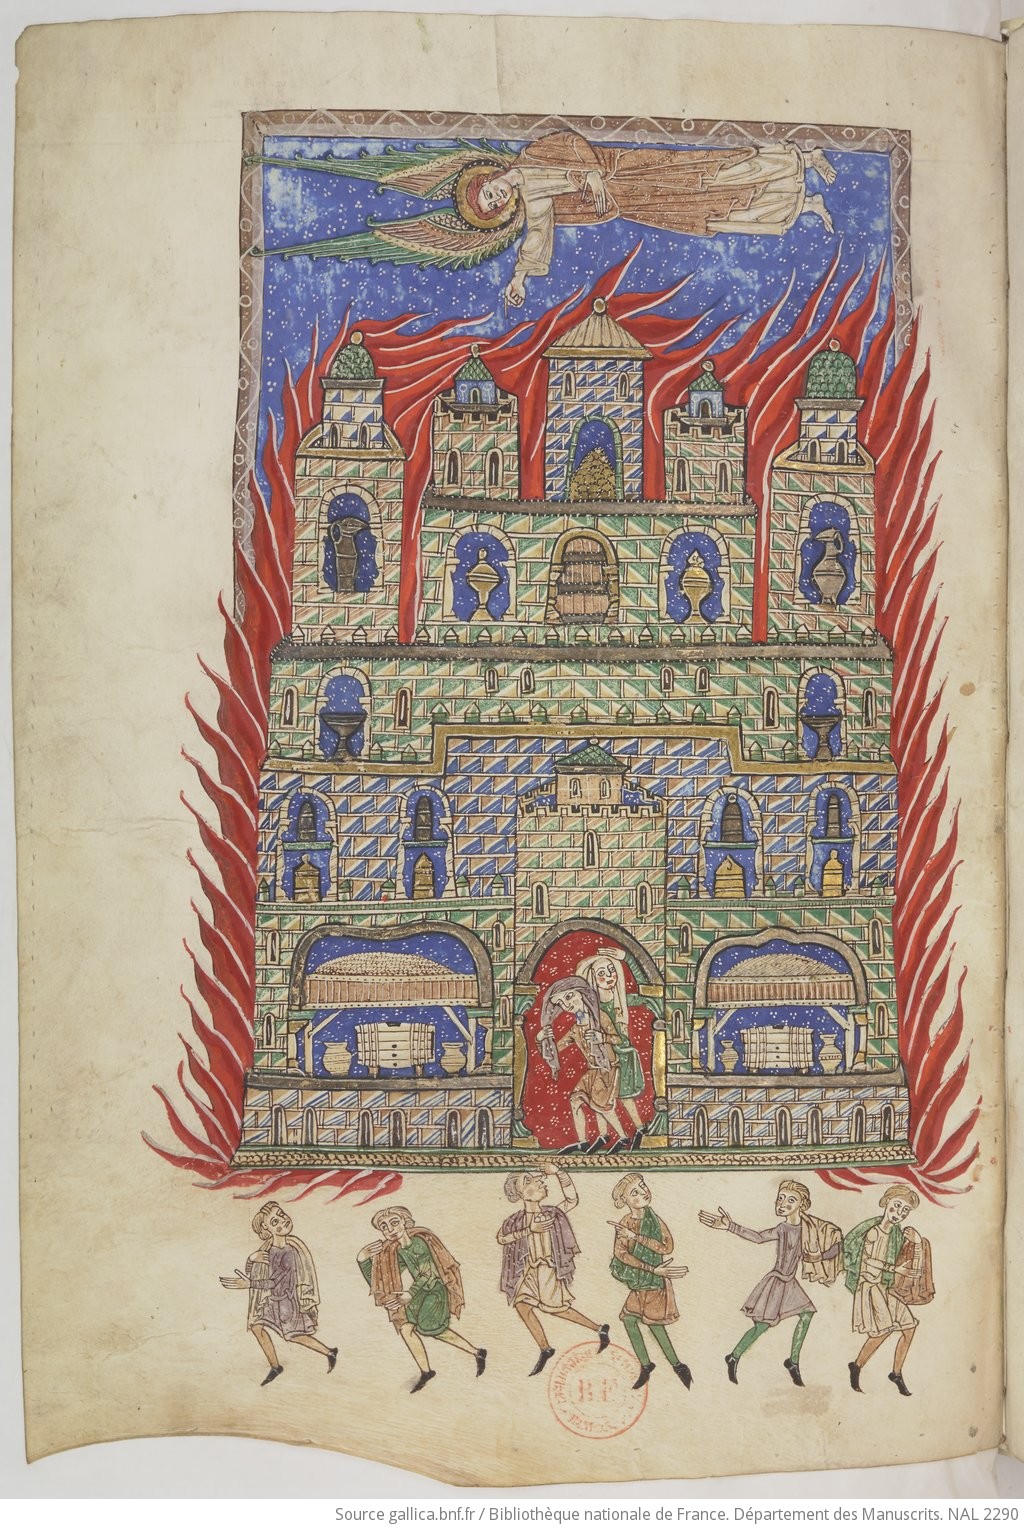 B.F.
Source gallica.bnf.fr / Bibliothèque nationale de France. Département des Manuscrits. NAL 2290